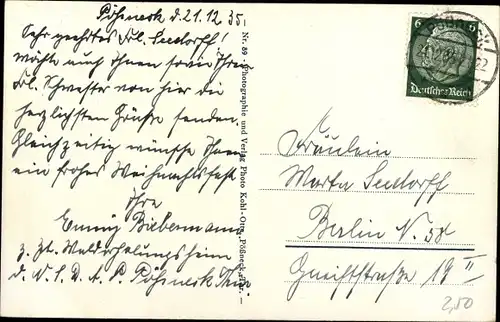 Pößneck d. 21.12.35.
Sehr geehrtes Frl. Seedorff!
möchte auch Ihnen sowie Ihrer
Frl. Schwester von hier die
herzlichsten Grüße senden.
Gleichzeitig wünsche Ihnen
ein frohes Weihnachtsfest
Ihre
Emmy Biebermann
z. Zt. Walderholungsheim
d. N.S.D.A.P. Pößneck Thür.
Nr. 89 · Photographie und Verlag Photo Kohl-Otto, Pößneck, Thür.
6 6
Deutsches Reich
Fräulein
Marta Seedorff
Berlin N. 58
Greiffstraße 18 II
2,50